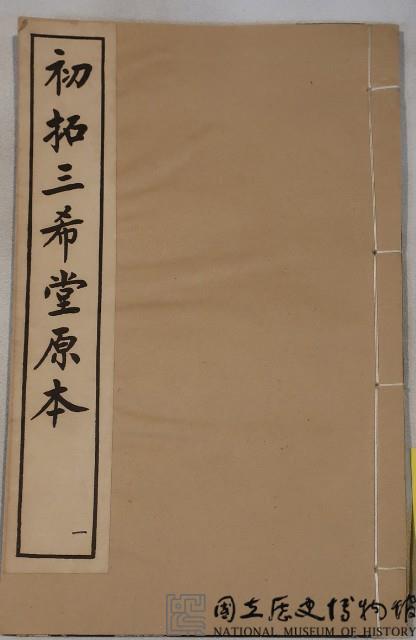 初拓三希堂原本
一
國立歷史博物館
NATIONAL MUSEUM OF HISTORY